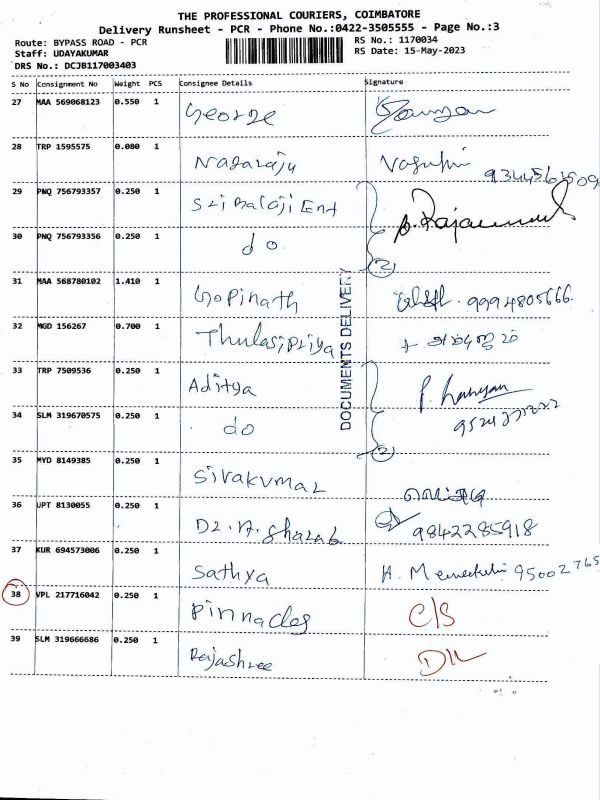 THE PROFESSIONAL COURIERS, COIMBATORE
Delivery Runsheet - PCR - Phone No.:0422-3505555 - Page No.:3
Route: BYPASS ROAD - PCR RS No.: 1170034
Staff: UDAYAKUMAR RS Date: 15-May-2023
DRS No.: DCJB117003403
S No Consignment No Weight PCS Consignee Details Signature
27 MAA 569068123 0.550 1 George
28 TRP 1595575 0.080 1 Nagaraju
29 PNQ 756793357 0.250 1 Sri Balaji Ent
30 PNQ 756793356 0.250 1 do 2
31 MAA 568780102 1.410 1 Gopinath 9994805666
32 MGD 156267 0.700 1 Thulasipriya
33 TRP 7509536 0.250 1 Aditya
34 SLM 319670575 0.250 1 do 2
35 MYD 8149385 0.250 1 Sivakumar
36 UPT 8130055 0.250 1 Dr. A. Sharab 9842285918
37 KUR 694573006 0.250 1 Sathya 95002765
38 VPL 217716042 0.250 1 Pinnacles C/S
39 SLM 319666686 0.250 1 Rajashree D/L
DOCUMENTS DELIVERY